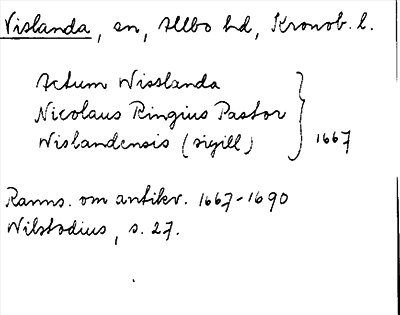 Vislanda, sn, Allbo hd, Kronob. l.
Actum Wisslanda
Nicolaus Ringius Pastor
Wislandensis (sigill) } 1667
Ranns. om antikv. 1667-1690
Wilstadius, s. 27.